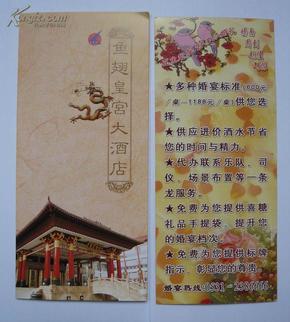 鱼翅皇宫大酒店
★多种婚宴标准(600元
/桌—1188元/桌)供您选
择。
★供应进价酒水节省
您的时间与精力。
★代办联系乐队、司
仪、场景布置等一条
龙服务。
★免费为您提供喜糖
礼品手提袋、提升您
的婚宴档次。
★免费为您提供标牌
指示,彰显您的尊贵。